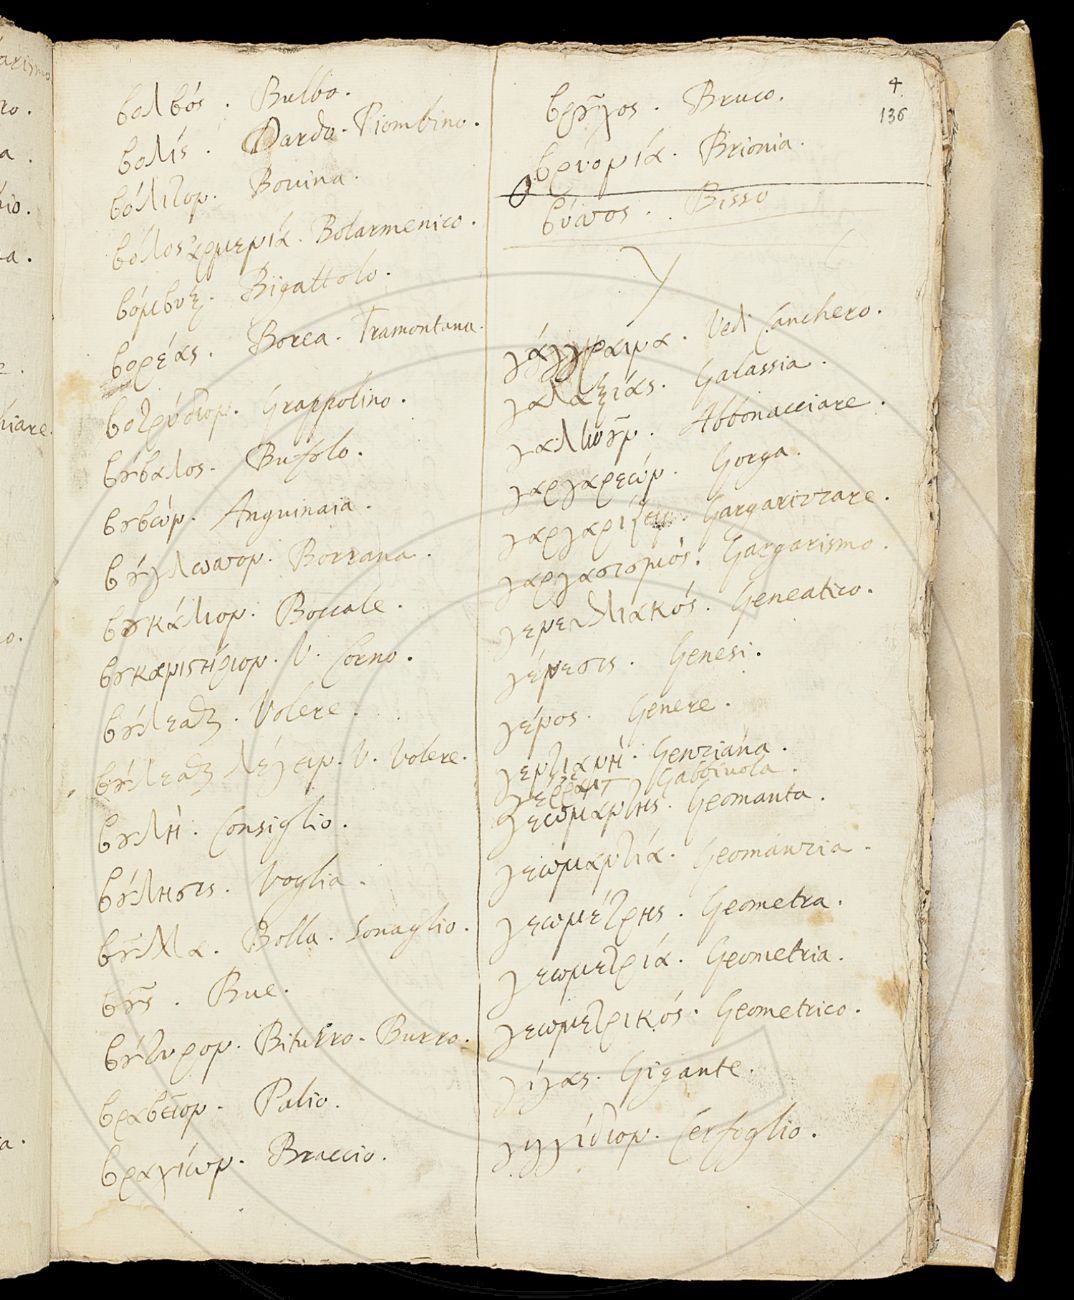 βολβός. Bulbo.
βολίς. Dardo. Piombino.
βόλιτον. Bovina.
βόλος ἀρμενία. Bolarmenico.
βόμβυξ. Bigattolo.
βορέας. Borea. Tramontana.
βοτρύδιον. Grappolino.
βούβαλος. Bufolo.
βουβών. Anguinaia.
βούγλωσσον. Borrana.
βουκάλιον. Boccale.
βουκανιστήριον. V. Corno.
βούλεσθαι. Volere.
βούλεσθαι λέγειν. V. Volere.
βουλή. Consiglio.
βούλησις. Voglia.
βούλλα. Bolla. Sonaglio.
βοῦς. Bue.
βούτυρον. Bituro. Burro.
βραβεῖον. Palio.
βραχίων. Braccio.
4
136
βροῦχος. Bruco.
βρυονία. Brionia.
βύσσος. Bisso
γ
γάγγραινα. Vedi Canchero.
γαλαξίας. Galassia.
γαλιοῦν. Abbonacciare.
γαργαρεών. Gorga.
γαργαρίζειν. Gargarizzare.
γαργασισμός. Gargarismo.
γενεαλιακός. Geneatico.
γένεσις. Genesi.
γένος. Genere.
γεντιανή. Genziana.
Gabbiuola.
γεωμάντης. Geomanta.
γεωμαντία. Geomanzia.
γεωμέτρης. Geometra.
γεωμετρία. Geometria.
γεωμετρικός. Geometrico.
γίγας. Gigante.
γιγγίδιον. Cerfoglio.